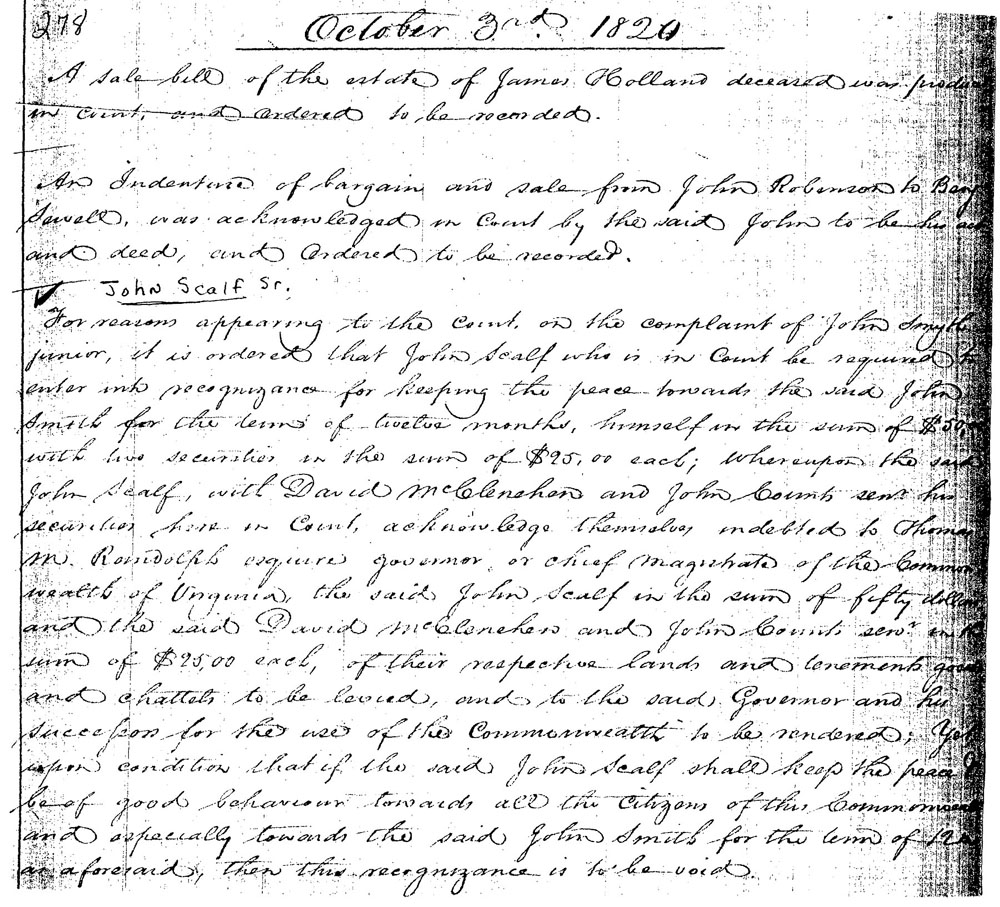 278 October 3rd. 1820
A sale bill of the estate of James Holland deceased was
in Court, and ordered to be recorded.
An Indenture of bargain and sale from John Robinson to
Sewell, was acknowledged in Court by the said John to be his
and deed, and ordered to be recorded.
John Scalf Sr.
For reasons appearing to the court, on the complaint of John Smythe
junior, it is ordered that John Scalf who is in Court be required
enter into recognizance for keeping the peace towards the said John
Smith for the term of twelve months, himself in the sum of
with two securities in the sum of $25,00 each; Whereupon the said
John Scalf, with David McClenehen and John Counts senr his
securities here in Court, acknowledge themselves indebted to Thomas
M. Randolph esquire governor or chief magistrate of the Common
wealth of Virginia, the said John Scalf in the sum of fifty
and the said David McClenehen and John Counts senr in
sum of $25,00 each, of their respective lands and tenements
and chattels to be levied, and to the said Governor and his
successors for the use of the Commonwealth to be rendered; Yet
upon condition that if the said John Scalf shall keep the peace
be of good behaviour towards all the Citizens of this
and especially towards the said John Smith for the term of
as aforesaid, then this recognizance is to be void.